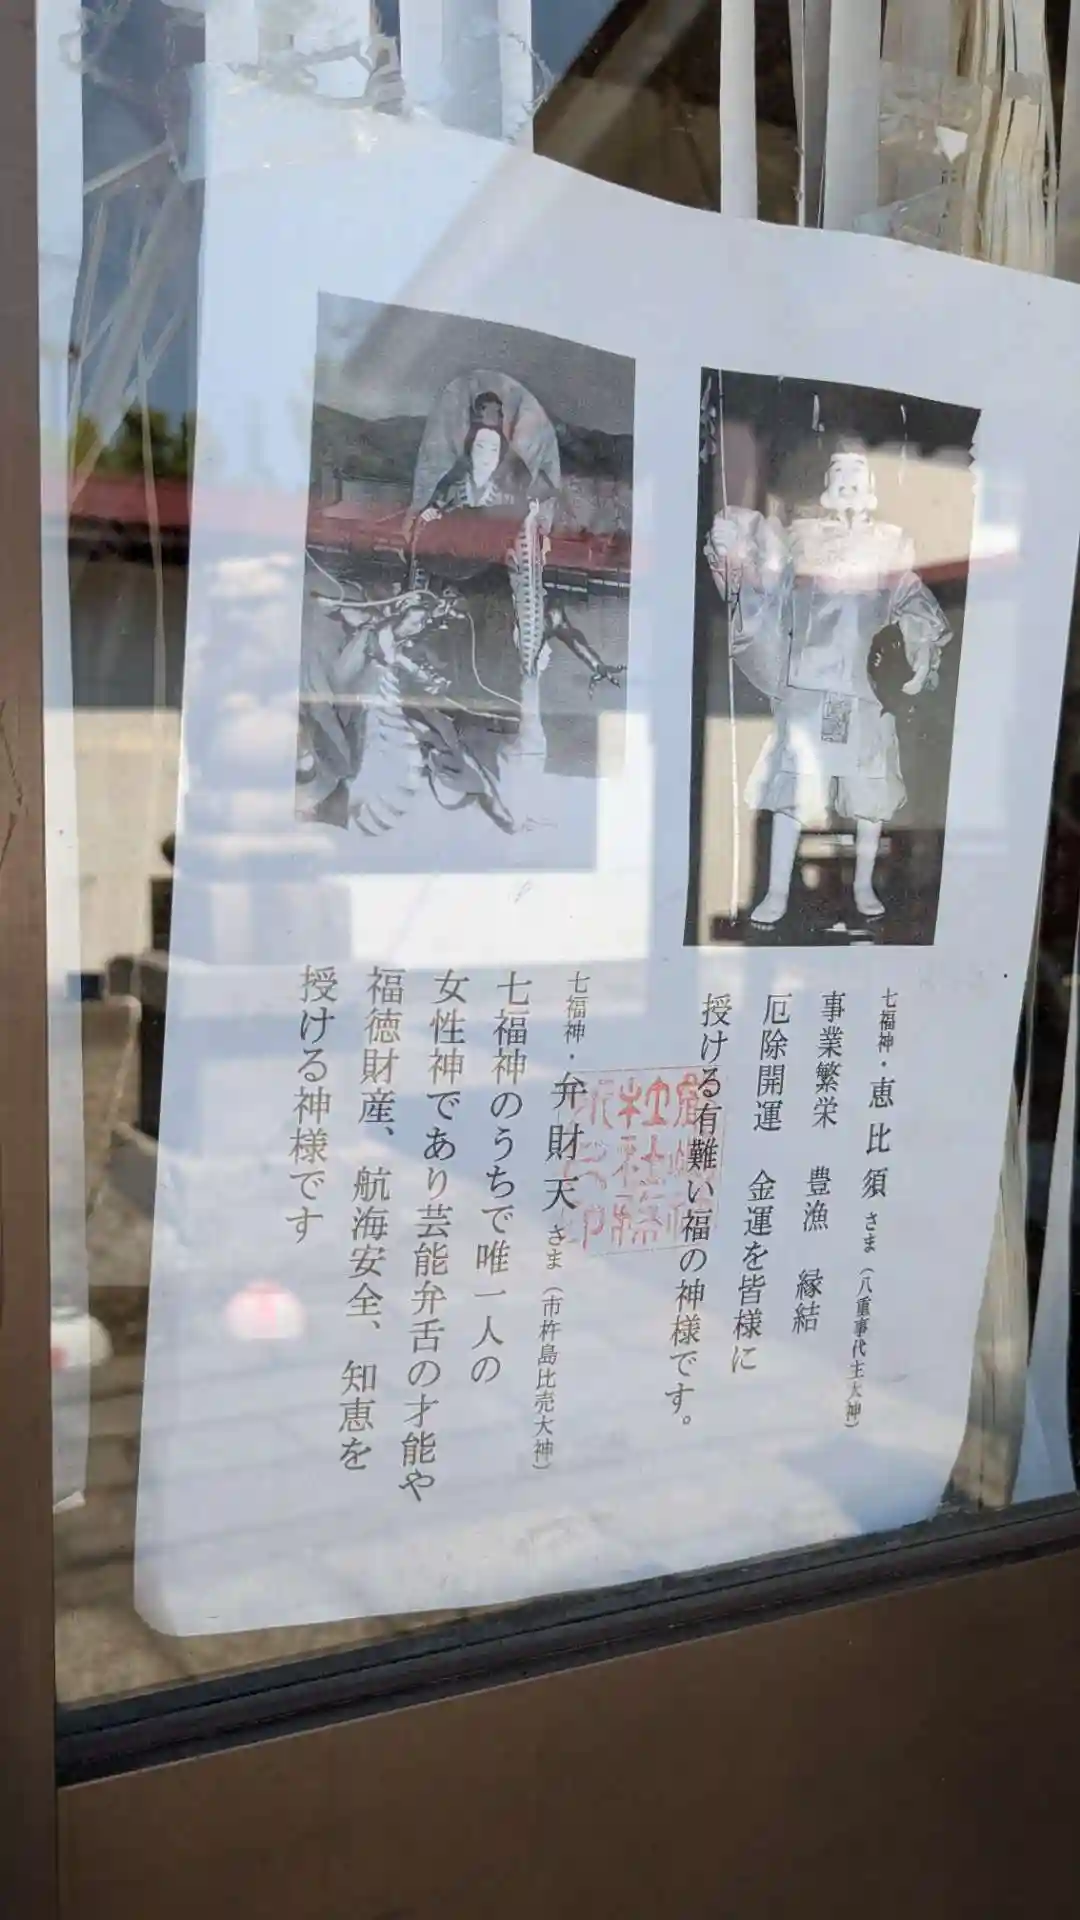 七福神・恵比須さま（八重事代主大神）
事業繁栄　豊漁　縁結
厄除開運　金運を皆様に
授ける有難い福の神様です。
七福神・弁財天さま（市杵島比売大神）
七福神のうちで唯一人の
女性神であり芸能弁舌の才能や
福徳財産、航海安全、知恵を
授ける神様です